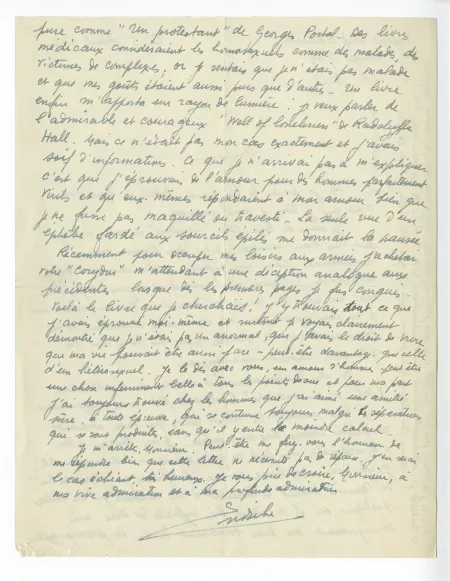 pure comme "Un protestant" de Georges Portal. Des livres
médicaux considéraient les homosexuels comme des malades, des
victimes de complexes; or je sentais que je n'étais pas malade
et que mes goûts étaient aussi purs que d'autres. Un livre
enfin m'apporta un rayon de lumière; je veux parler de
l'admirable et courageux "Well of loneliness" de Radclyffe
Hall. Mais ce n'était pas mon cas exactement et j'avais
soif d'informations. Ce que je n'arrivai pas à m'expliquer
c'est que j'éprouvais de l'amour pour des hommes parfaitement
virils et qu'eux-mêmes répondaient à mon amour bien que
je ne fusse pas maquillé ou travesti. La seule vue d'un
éphèbe fardé aux sourcils épilés me donnait la nausée.
Récemment pour occuper mes loisirs aux armées j'achetai
votre "Corydon" m'attendant à une déception analogue aux
précédentes lorsque dès les premières pages je fus conquis.
Voilà le livre que je cherchais! J'y trouvais tout ce que
j'avais éprouvé moi-même et surtout j'y voyais clairement
démontré que je n'étais pas un anormal, que j'avais le droit de vivre
que ma vie pouvait être aussi pure - peut-être davantage que celle
d'un hétérosexuel. Je le dis avec vous, un amour d'homme peut être
une chose infiniment belle à tous les points de vue et pour ma part
j'ai toujours trouvé chez les hommes que j'ai aimé une amitié
sûre à toute épreuve, qui se continue toujours malgré les séparations
qui se sont produites, sans qu'il y entre le moindre calcul.
Je m'arrête, Monsieur. Peut-être me ferez-vous l'honneur de
me répondre bien que cette lettre ne nécessite pas de réponse. J'en serai
le cas échéant, très heureux. Je vous prie de croire, Monsieur, à
ma vive admiration et à ma profonde admiration